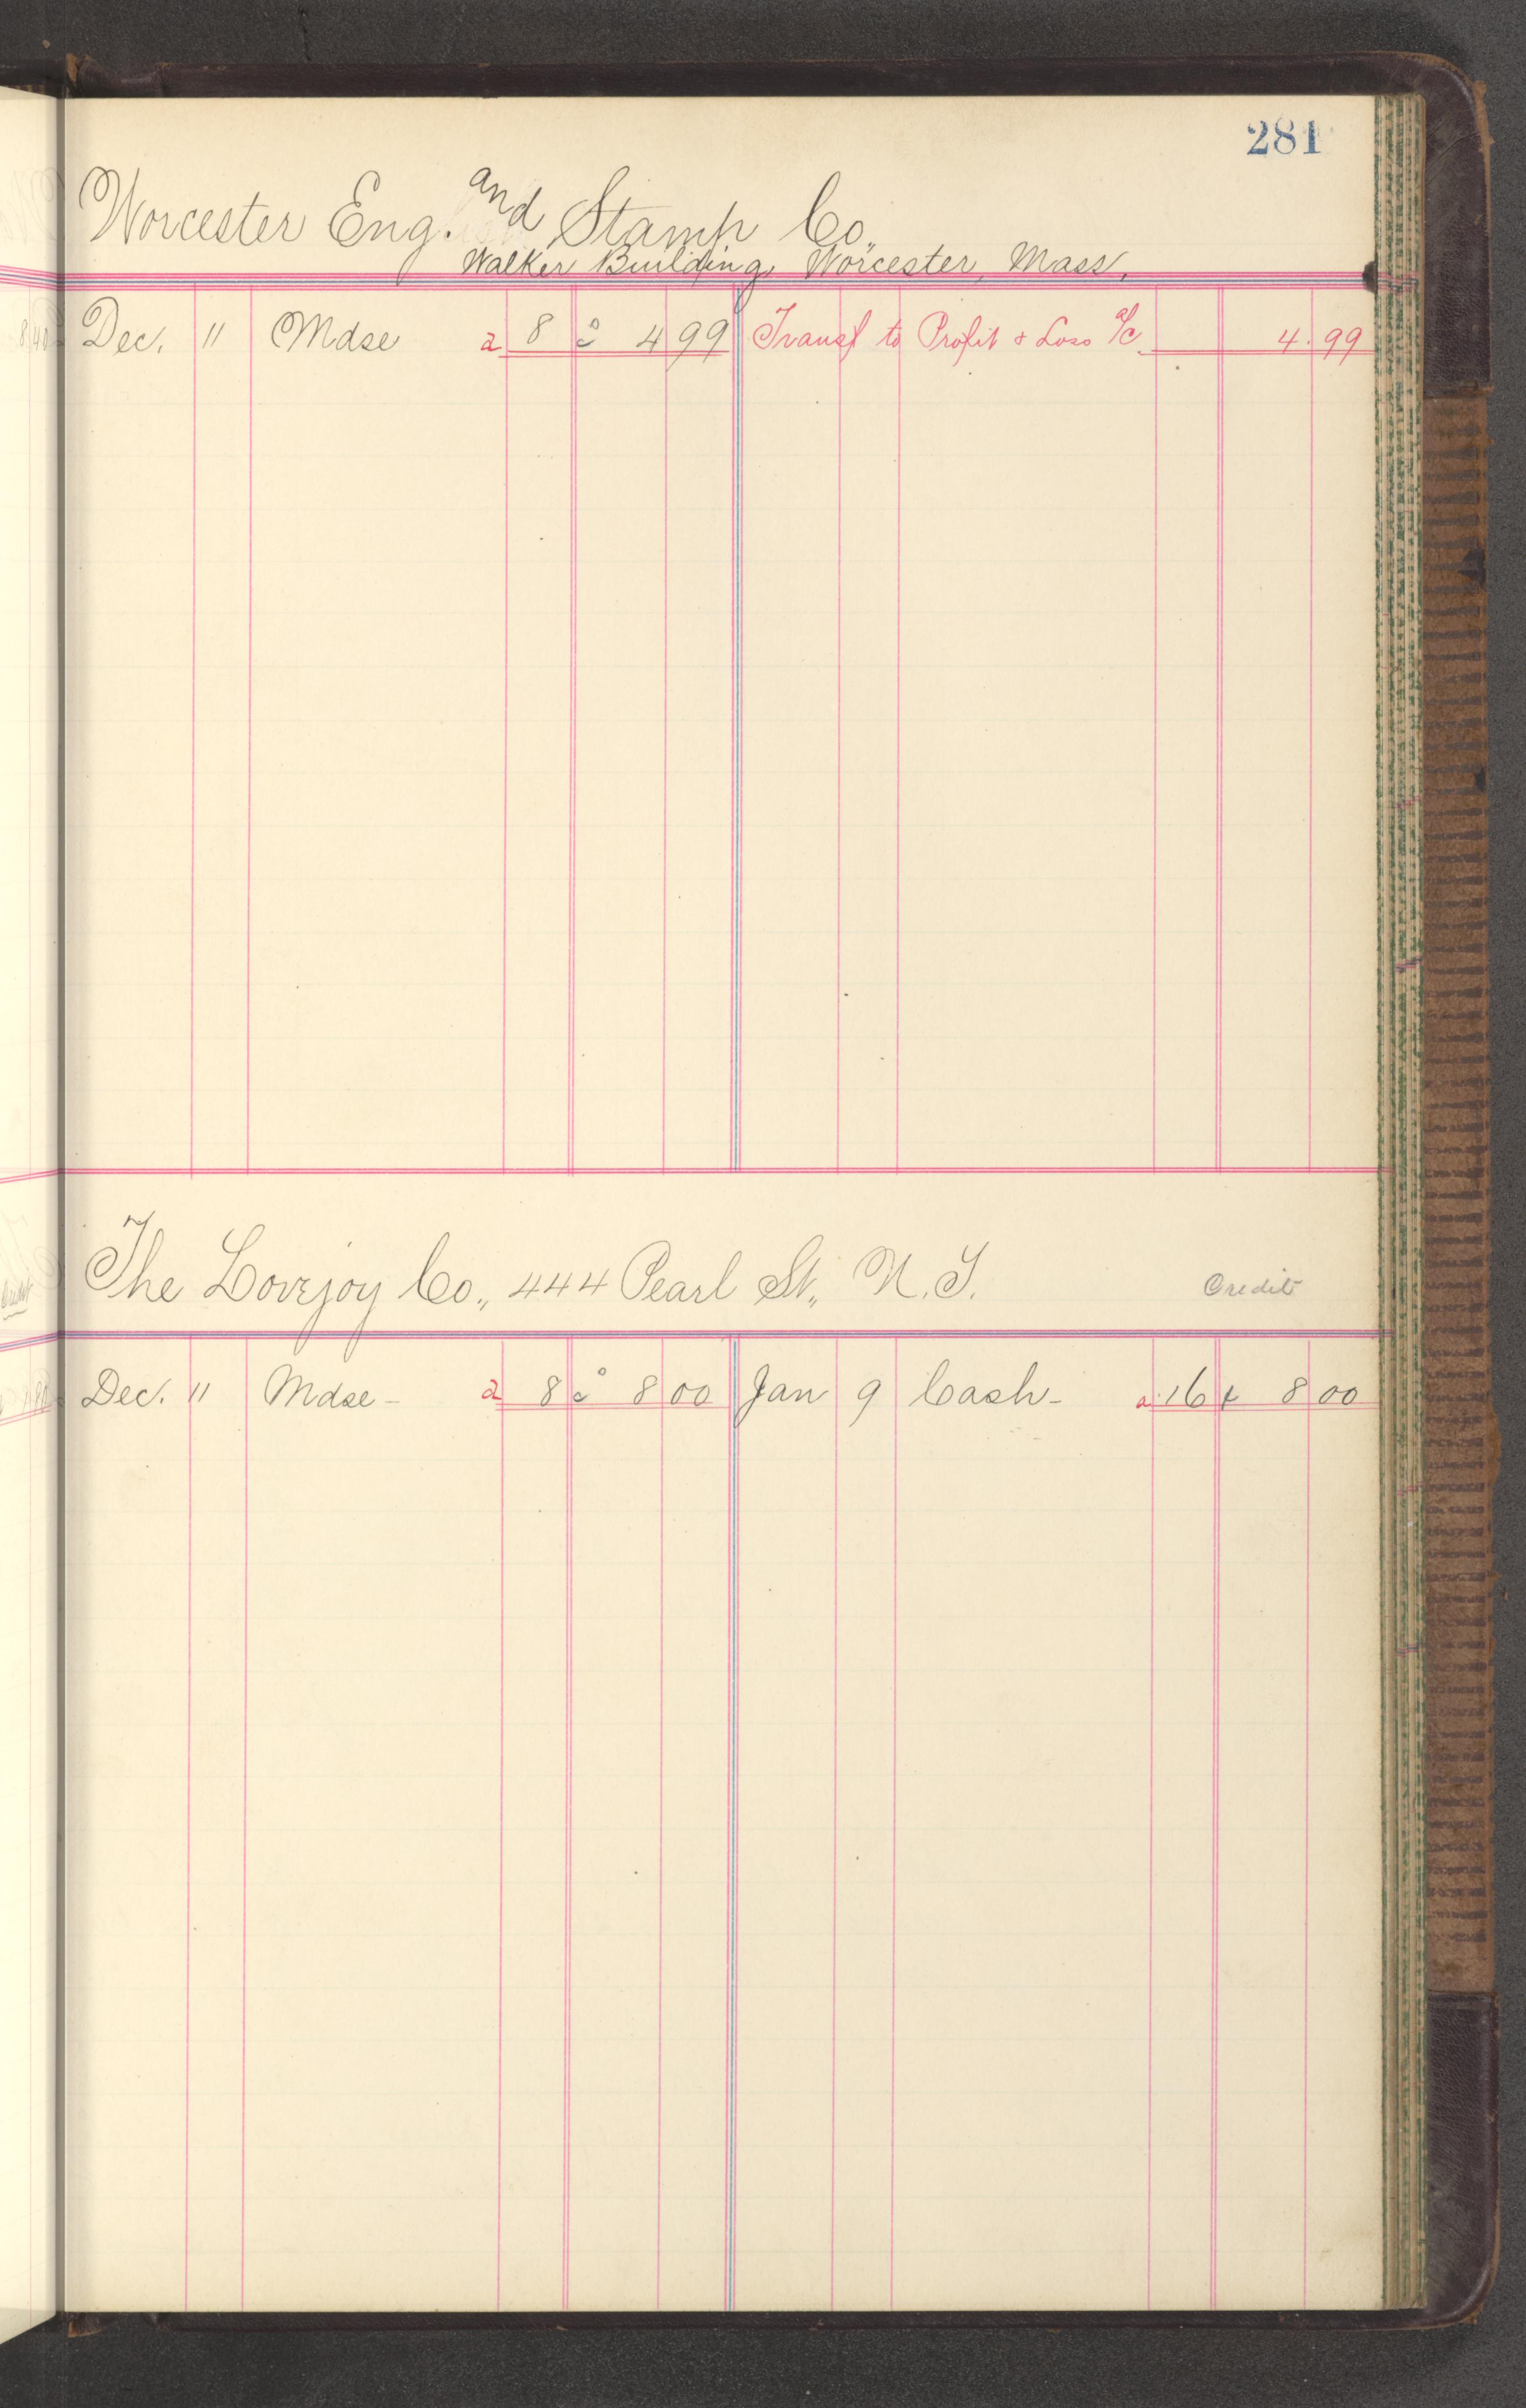 281
Worcester Eng. and Stamp Co.,
Walker Building, Worcester, Mass.
Dec. 11 Mdse a 8 c 4 99 Transf to Profit & Loss a/c 4.99
The Lovejoy Co., 444 Pearl St., N.Y. Credit
Dec. 11 Mdse - a 8 c 8 00 Jan 9 Cash - a 16 8 00